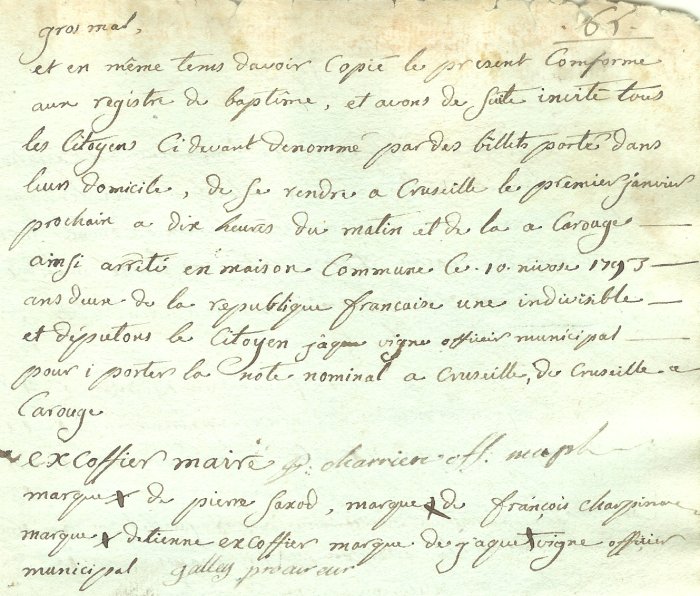 65.
gros mal,
et en même tems davoir Copié le present Comforme
aux registre de baptême, et avons de suite invité tous
les Citoyens Ci devant denommé par des billets porté dans
leurs domicile, de se rendre a Cruseille le premier janvier
prochain a dix heures du matin et de la a Carouge
ainsi arrêté en maison Commune Ce 10 nivose 1793
ans deux de la republique francaise une indivisible
et députons le Citoyen jaque vigne officier municipal
pour i porter la note nominal a Cruseille, de Cruseille a
Carouge
excoffier maire charriere off.
marque x de pierre saxod, marque x de françois
marque x detienne excoffier marque de jaque x vigne officier
municipal gallay procureur